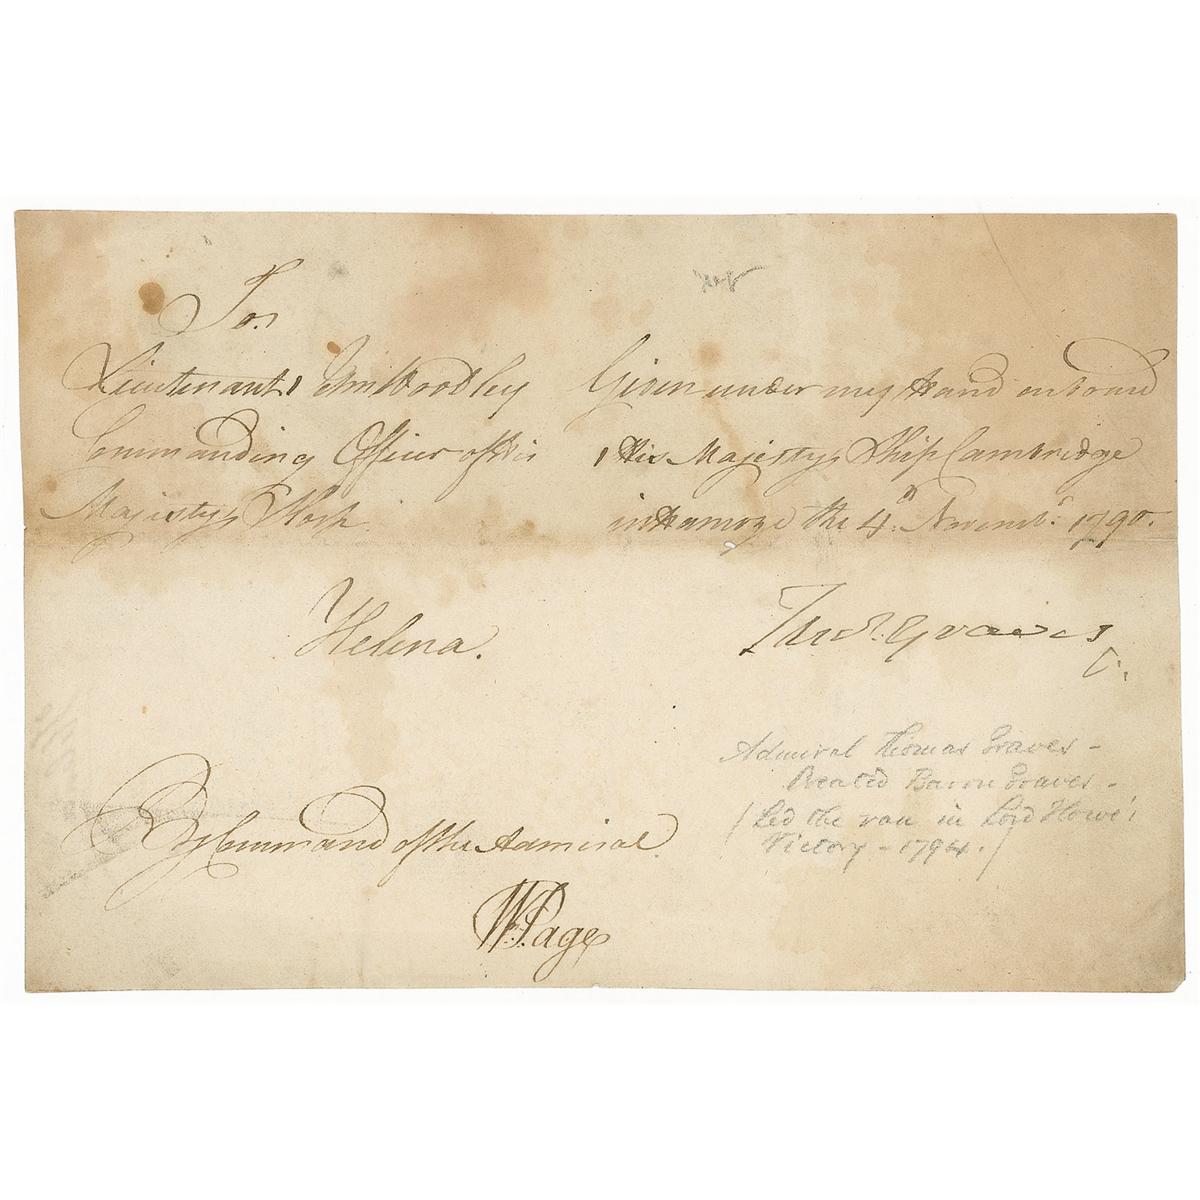 To.
Lieutenant Wm Woodley
Commanding Officer of His
Majesty's Sloop
Helena.
Given under my Hand on board
His Majesty's Ship Cambridge
in Hamoze the 4th Novemb.r 1790.
Tho.s Graves
By Command of the Admiral
W. Page
Admiral Thomas Graves -
Created Baron Graves -
(Led the van in Lord Howe's
Victory - 1794.)